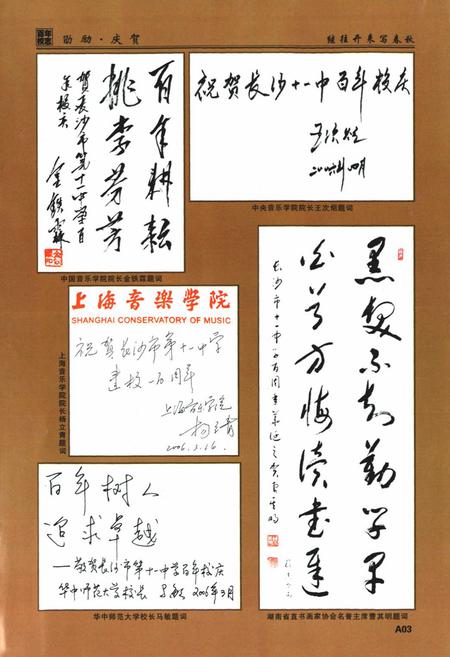 百年校志 勖励·庆贺
继往开来写春秋
百年耕耘
桃李芬芳
贺长沙市第十一中学百
年校庆
金铁霖
中国音乐学院院长金铁霖题词
祝贺长沙十一中百年校庆
王次炤
中央音乐学院院长王次炤题词
上海音乐学院
SHANGHAI CONSERVATORY OF MUSIC
祝贺长沙市第十一中学
建校一百周年
上海音乐学院
杨立青
2006.3.16.
上海音乐学院院长杨立青题词
黑发不知勤学早
白首方悔读书迟
湖南省直书画家协会名誉主席曹其明题词
百年树人
追求卓越
——敬贺长沙市第十一中学百年校庆
华中师范大学校长 马敏 2006年3月
华中师范大学校长马敏题词
A03